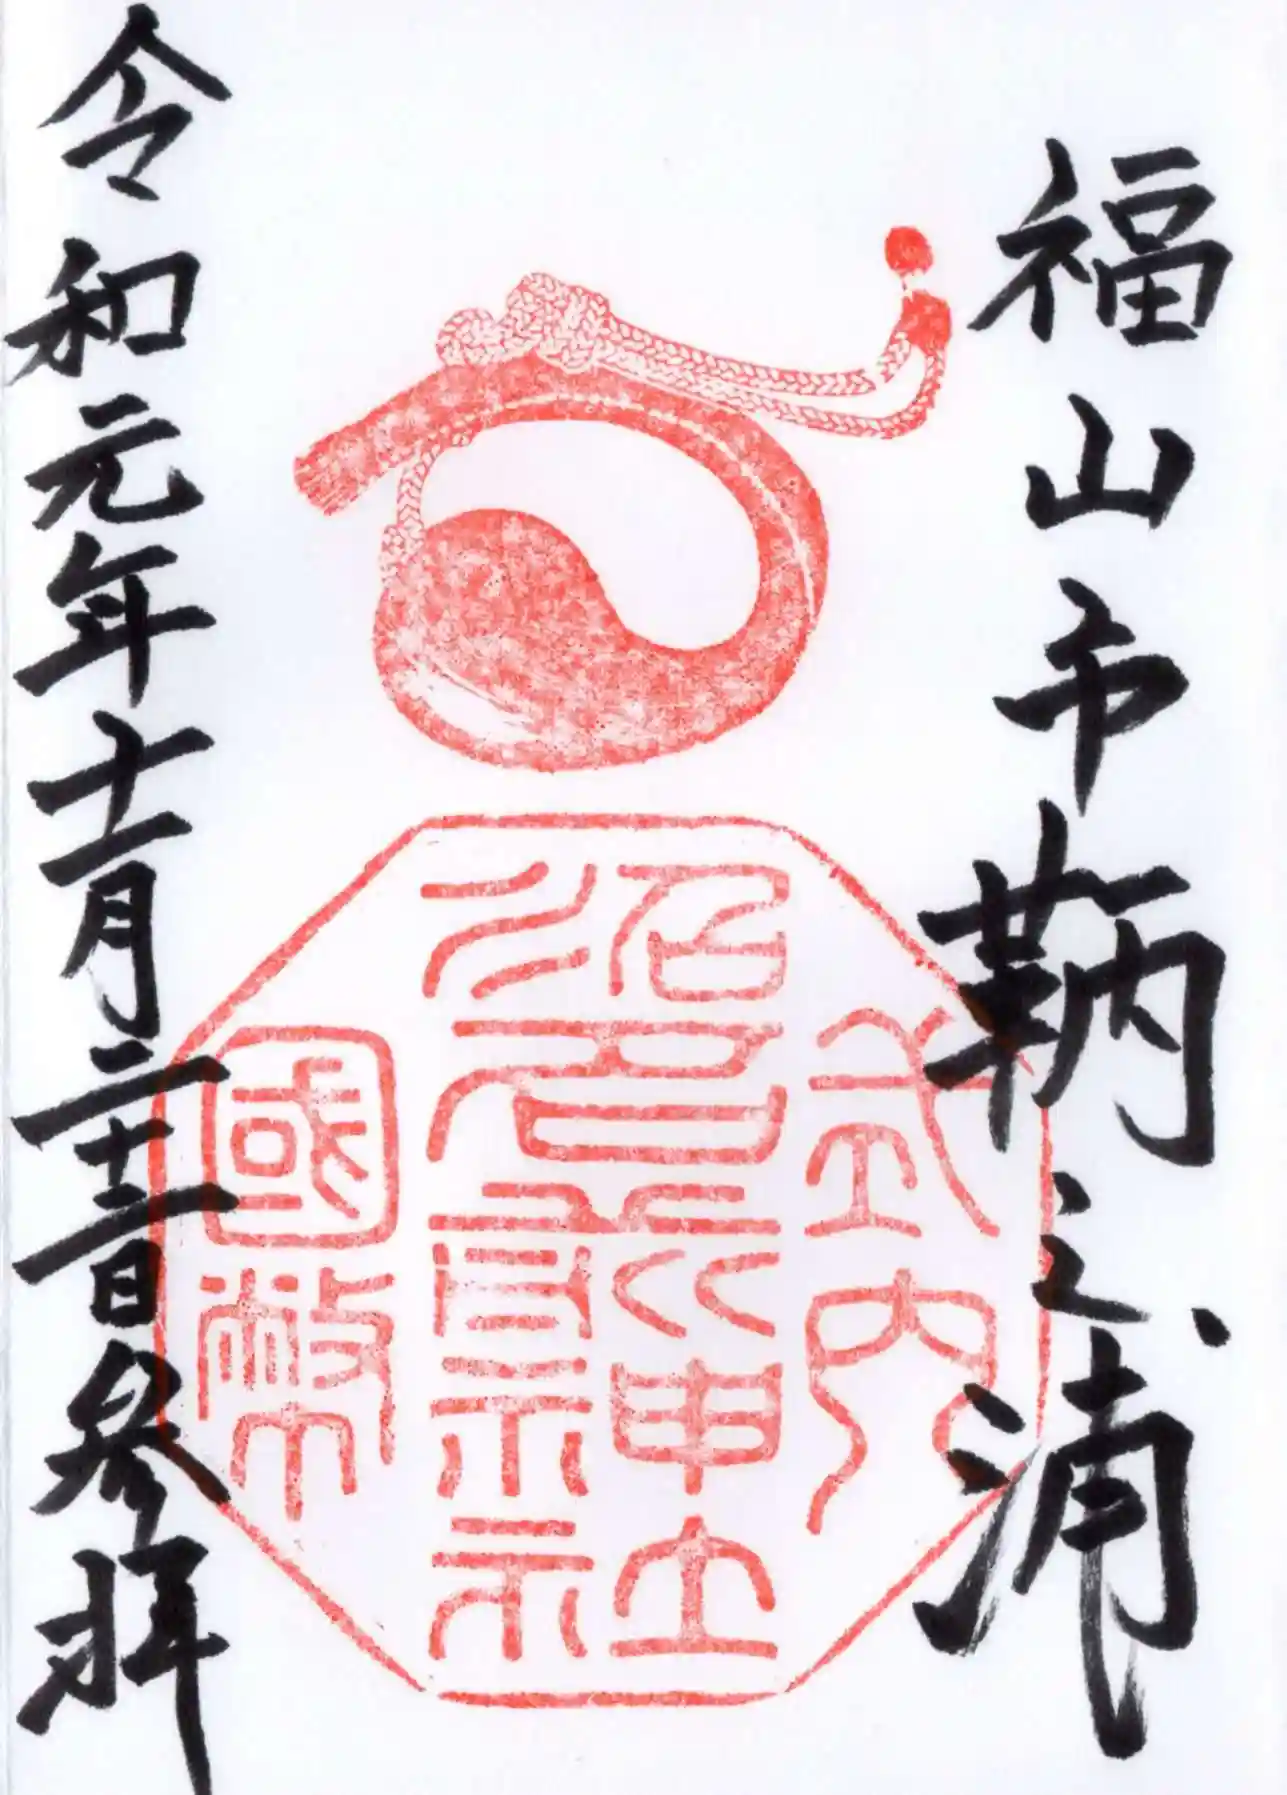 福山市鞆之浦
式内
沼名前神社
國幣
令和元年十一月二十二日参拝